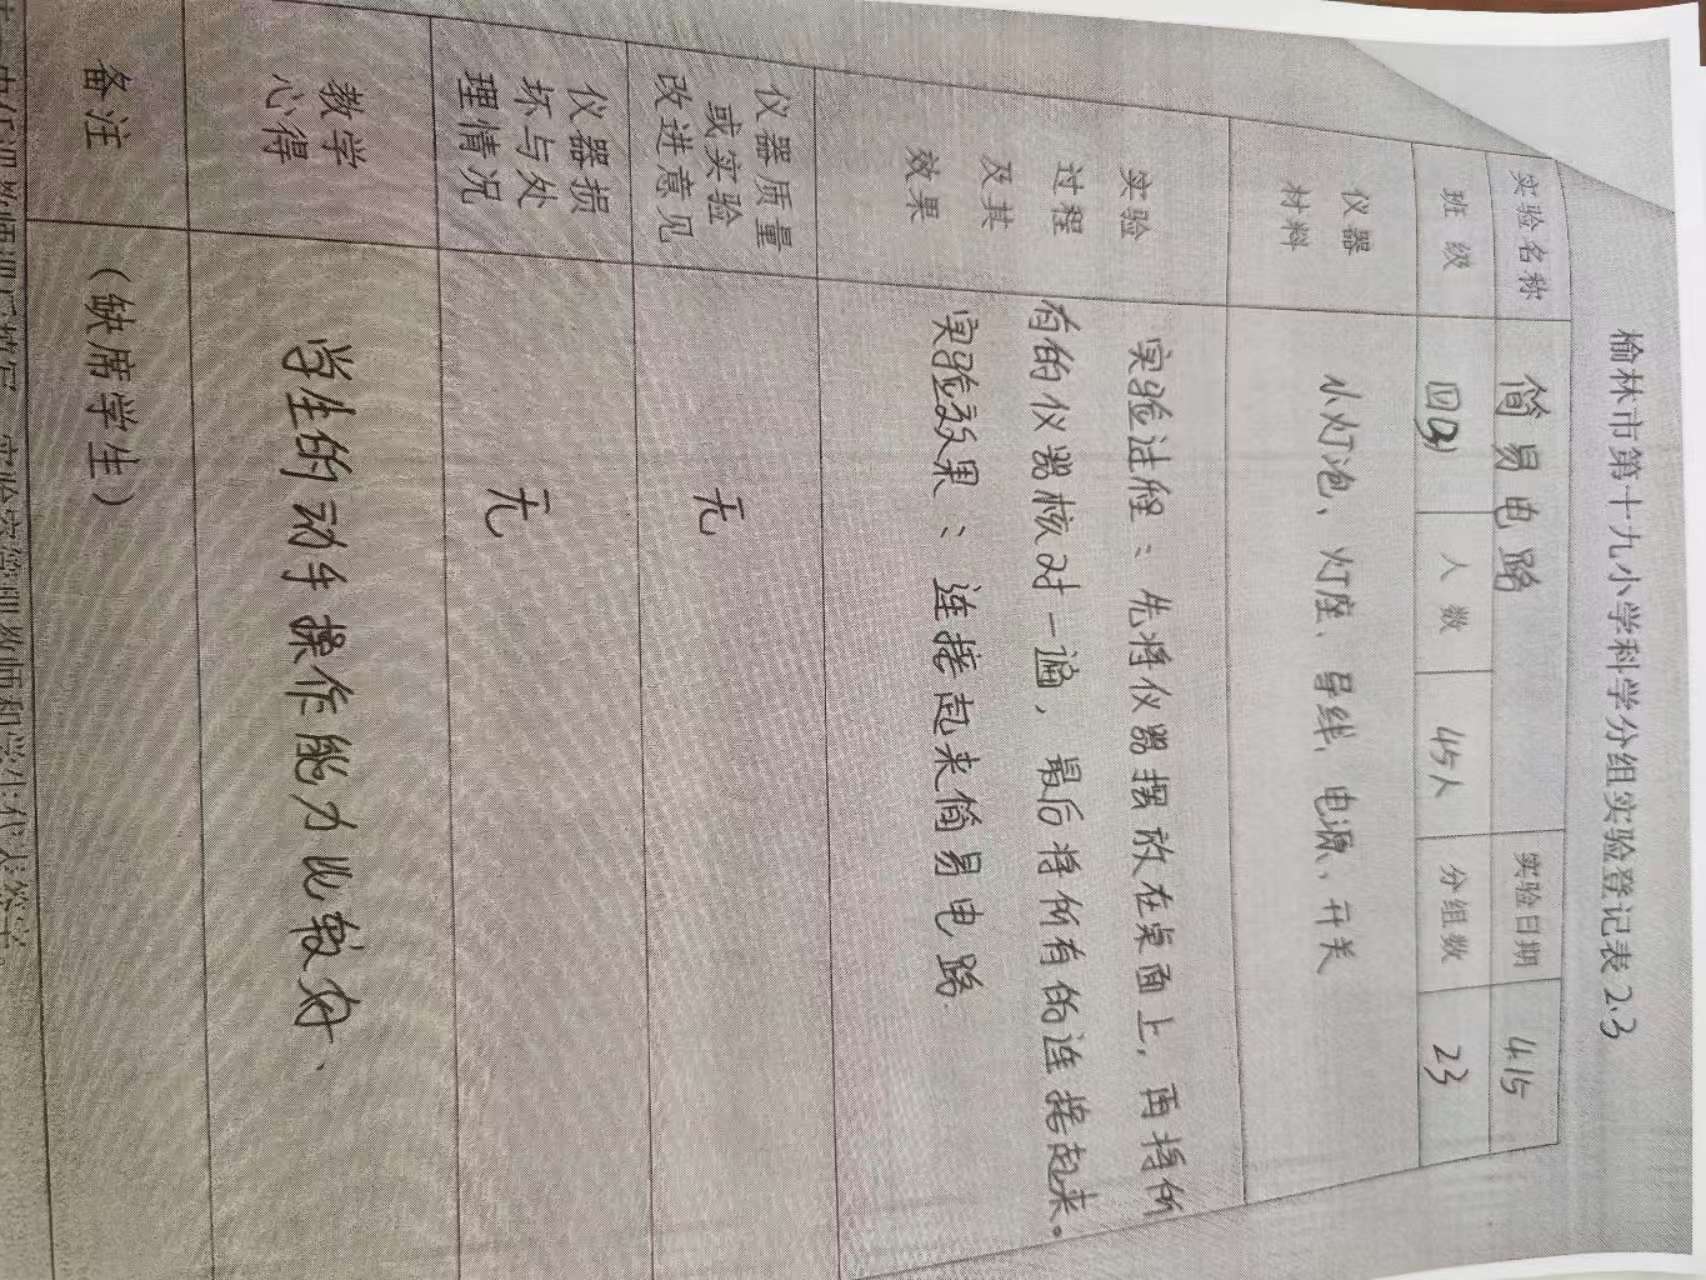 榆林市第十九小学科学分组实验登记表2.3
实验名称 简易电路 实验日期 4.15
班级 四(3) 人数 45人 分组数 23
仪器材料 小灯泡、灯座、导线、电源、开关
实验过程及其效果
实验过程：先将仪器摆放在桌面上，再将所
有的仪器核对一遍，最后将所有的连接起来。
实验效果：连接起来简易电路.
仪器质量或实验改进意见 无
仪器损坏与处理情况 无
教学心得 学生的动手操作能力比较好、
备注 （缺席学生）